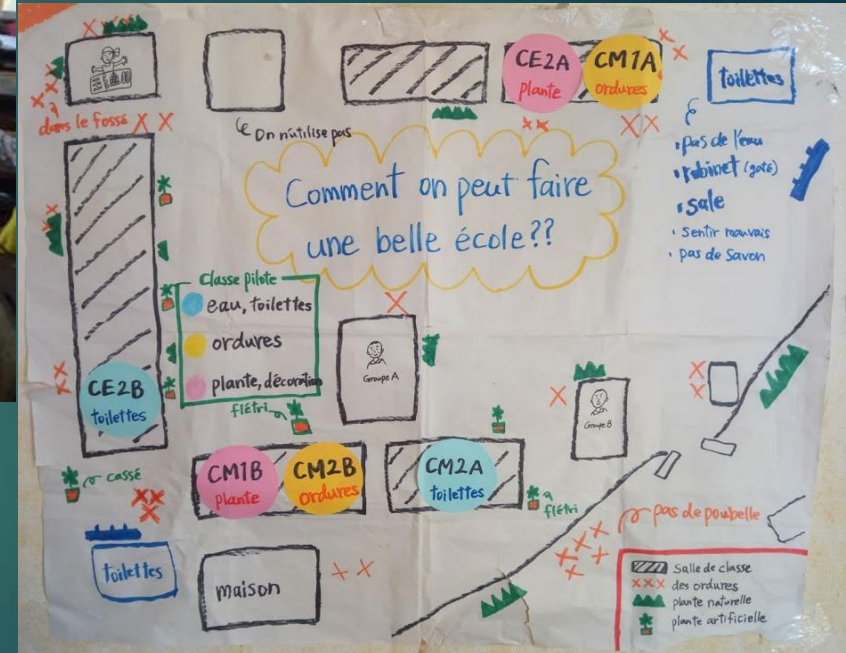 CE2A
plante
CM1A
ordures
toilettes
dans le fossé
On n'utilise pas
pas de l'eau
robinet (gaté)
sale
sentir mauvais
pas de savon
Comment on peut faire
une belle école??
Classe pilote
eau, toilettes
ordures
plante, décoration
flétri
Groupe A
Groupe B
CE2B
toilettes
cassé
CM1B
plante
CM2B
ordures
CM2A
toilettes
flétri
pas de poubelle
toilettes
maison
Salle de classe
des ordures
plante naturelle
plante artificielle